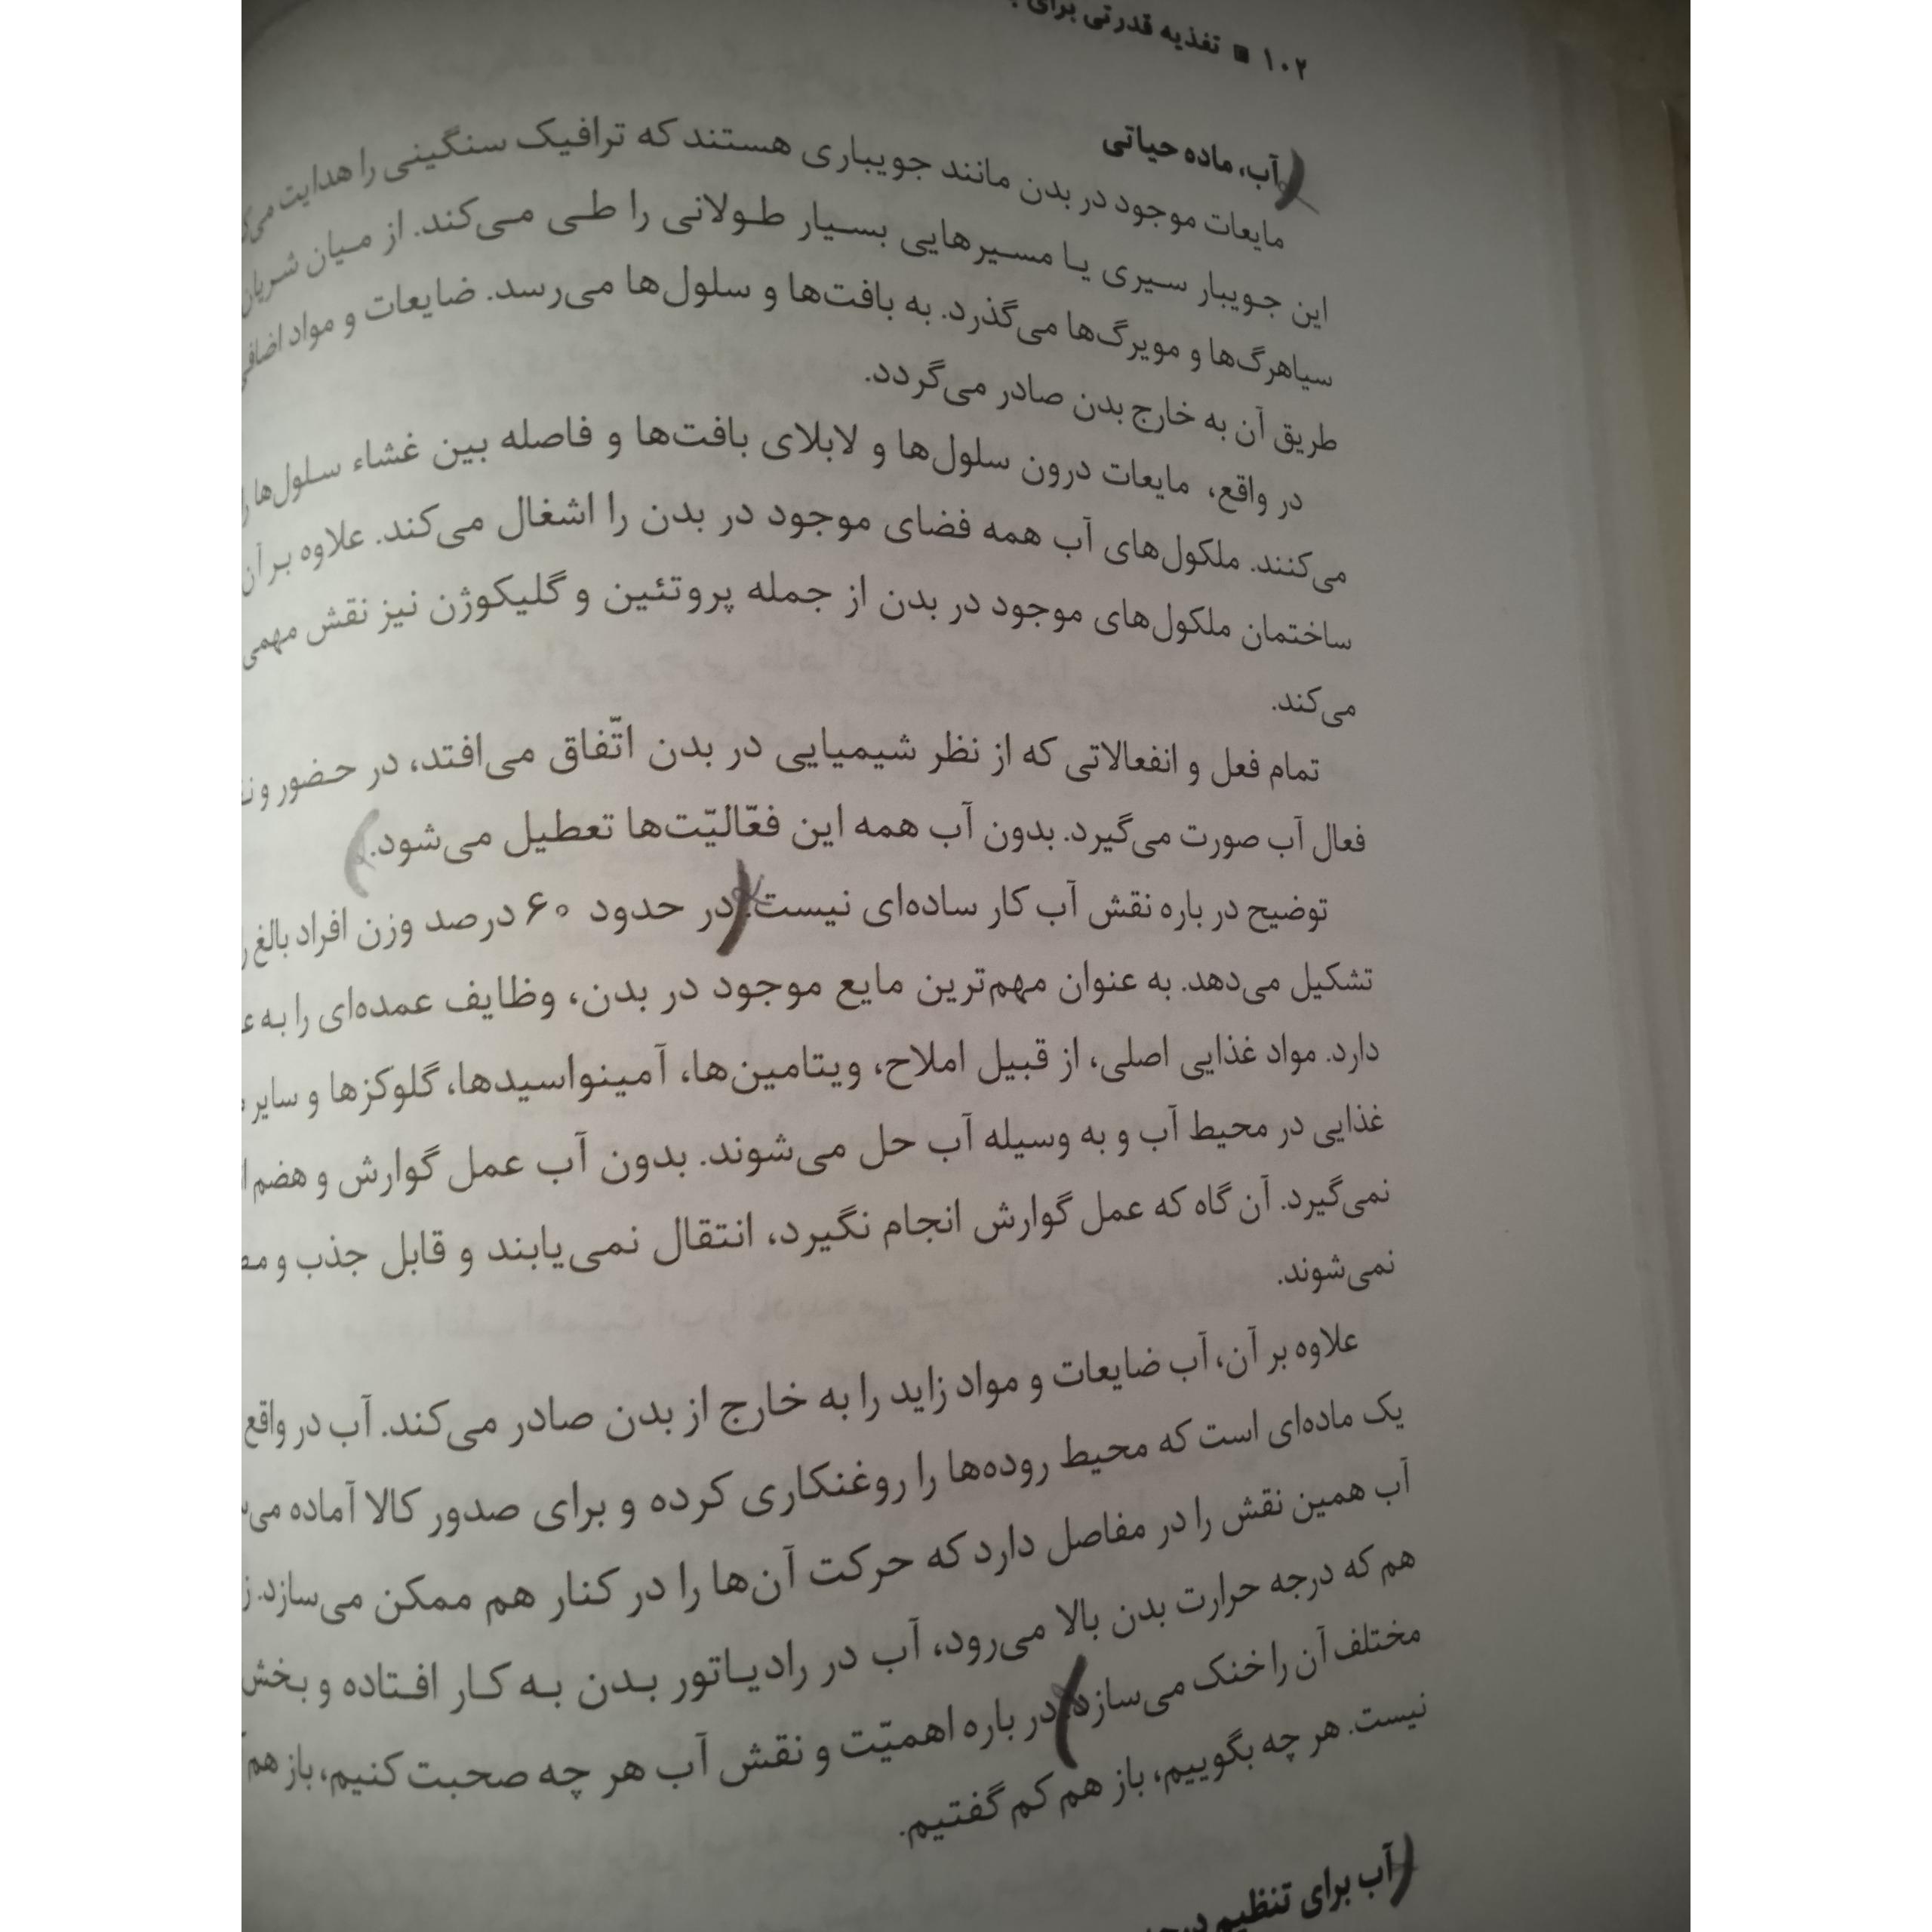 ۱۰۲ ■ تغذیه قدرتی برای
آب، ماده حیاتی
مایعات موجود در بدن مانند جویباری هستند که ترافیک سنگینی را هدایت
این جویبار سیری یا مسیرهایی بسیار طولانی را طی می‌کند. از میان
سیاهرگ‌ها و مویرگ‌ها می‌گذرد. به بافت‌ها و سلول‌ها می‌رسد. ضایعات و مواد
طریق آن به خارج بدن صادر می‌گردد.
در واقع، مایعات درون سلول‌ها و لابلای بافت‌ها و فاصله بین غشاء سلول‌ها
می‌کنند. ملکول‌های آب همه فضای موجود در بدن را اشغال می‌کند. علاوه بر آن
ساختمان ملکول‌های موجود در بدن از جمله پروتئین و گلیکوژن نیز نقش مهمی
می‌کند.
تمام فعل و انفعالاتی که از نظر شیمیایی در بدن اتّفاق می‌افتد، در حضور و
فعال آب صورت می‌گیرد. بدون آب همه این فعّالیّت‌ها تعطیل می‌شود.
توضیح در باره نقش آب کار ساده‌ای نیست. در حدود ۶۰ درصد وزن افراد بالغ
تشکیل می‌دهد. به عنوان مهم‌ترین مایع موجود در بدن، وظایف عمده‌ای را به
دارد. مواد غذایی اصلی، از قبیل املاح، ویتامین‌ها، آمینواسیدها، گلوکزها و سایر
غذایی در محیط آب و به وسیله آب حل می‌شوند. بدون آب عمل گوارش و هضم
نمی‌گیرد. آن گاه که عمل گوارش انجام نگیرد، انتقال نمی‌یابند و قابل جذب و
نمی‌شوند.
علاوه بر آن، آب ضایعات و مواد زاید را به خارج از بدن صادر می‌کند. آب در واقع
یک ماده‌ای است که محیط روده‌ها را روغنکاری کرده و برای صدور کالا آماده
آب همین نقش را در مفاصل دارد که حرکت آن‌ها را در کنار هم ممکن می‌سازد.
هم که درجه حرارت بدن بالا می‌رود، آب در رادیاتور بدن به کار افتاده و بخش
مختلف آن را خنک می‌سازد. در باره اهمیّت و نقش آب هر چه صحبت کنیم، باز هم
نیست. هر چه بگوییم، باز هم کم گفتیم.
آب برای تنظیم